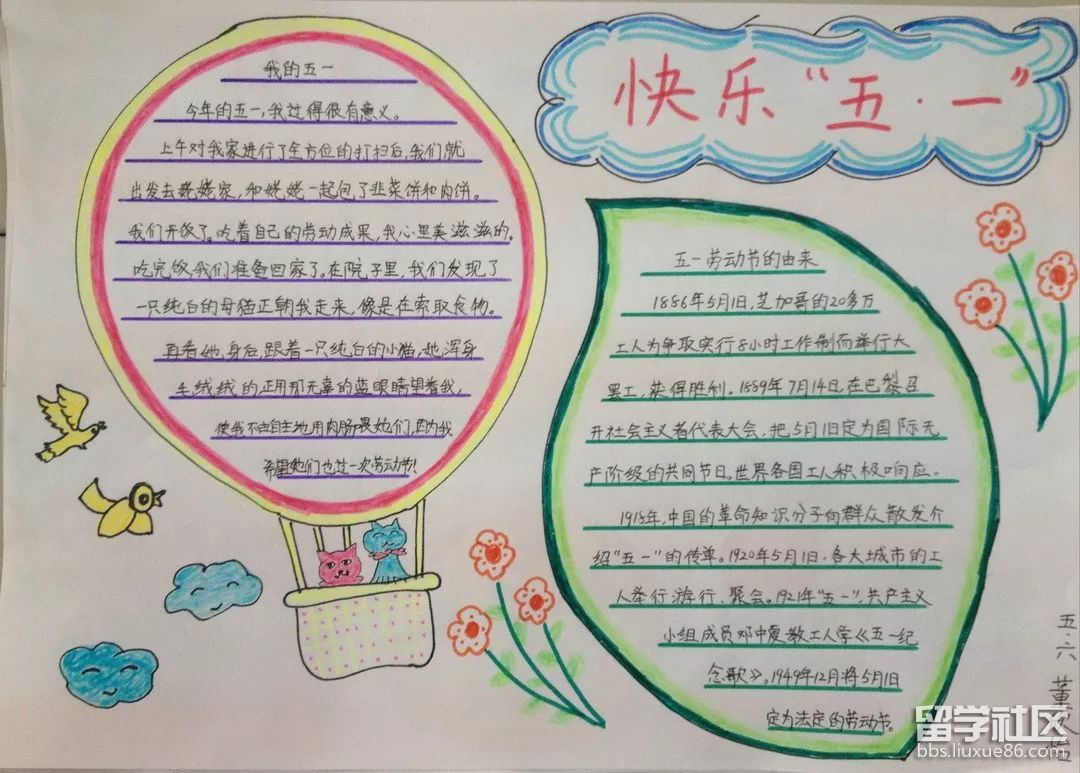 快乐“五·一”
我的五一
今年的五一,我过得很有意义。
上午对我家进行了全方位的打扫后,我们就
出发去姥姥家,和姥姥一起包了韭菜饼和肉饼。
我们开饭了。吃着自己的劳动成果,我心里美滋滋的。
吃完饭,我们准备回家了。在院子里,我们发现了
一只纯白的母猫正朝我走来,像是在索取食物。
再看她,身后,跟着一只纯白的小猫,她浑身
毛绒绒的正用那无辜的蓝眼睛望着我,
使我不由自主地用肉肠喂她们,因为我
希望她们也过一次劳动节!
五一劳动节的由来
1886年5月1日,芝加哥的20多万
工人为争取实行8小时工作制而举行大
罢工,获得胜利。1889年7月14日,在巴黎召
开社会主义者代表大会,把5月1日定为国际无
产阶级的共同节日。世界各国工人积极响应。
1918年,中国的革命知识分子向群众散发介
绍“五一”的传单。1920年5月1日,各大城市的工
人举行游行、聚会。1921年“五一”,共产主义
小组成员邓中夏教工人学《五一纪
念歌》。1949年12月将5月1日
定为法定的劳动节。
五·六 董
留学社区
bbs.liuxue86.com